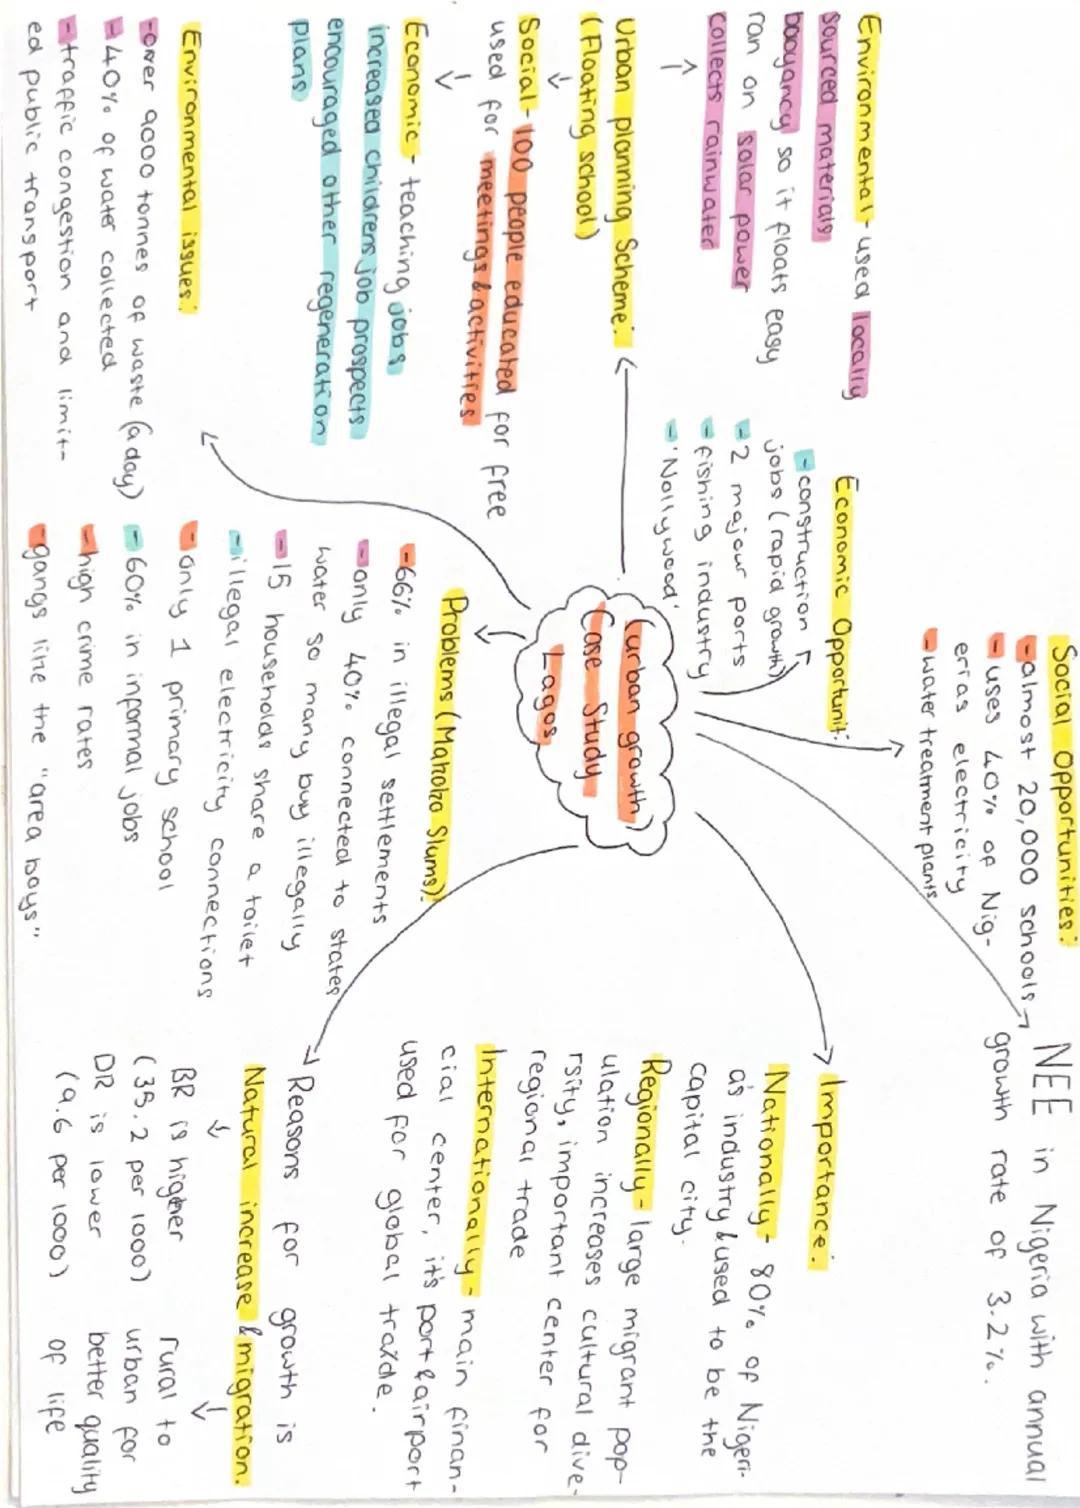 Social Opportunities:
-almost 20,000 schools
-uses 40% of Nig-
erias electricity
-water treatment plants
NEE in Nigeria with annual
growth rate of 3.2%.
Economic Opportunit:
-construction
jobs (rapid growth)
-2 majour ports
-fishing industry
-'Nollywood'
Environmental-used locally
sourced materials
booyancy so it floats easy
ran on solar power
collects rainwater
Urban planning Scheme:
(Floating school)
Social-100 people educated for free
used for meetings & activities
Economic- teaching jobs
increased childrens job prospects
encouraged other regeneration
plans
(urban growth)
Case Study
Lagos
Importance:
Nationally- 80% of Nigeri-
a's industry & used to be the
capital city.
Regionally-large migrant pop-
ulation increases cultural dive-
rsity, important center for
regional trade
Internationally-main finan-
cial center, it's port & airport
used for global trade.
Environmental issues:
-over 9000 tonnes of waste (a day)
-40% of water collected
-traffic congestion and limit-
ed public transport
Problems (Makoko Slums):
-66% in illegal settlements
-only 40% connected to states
water so many buy illegally
-15 households share a toilet
-illegal electricity connections
-only 1 primary school
-60% in informal jobs
-high crime rates
-gangs like the "area boys"
Reasons for growth is
Natural increase & migration.
BR is higher
(35.2 per 1000)
DR is lower
(9.6 per 1000)
rural to
urban for
better quality
of life